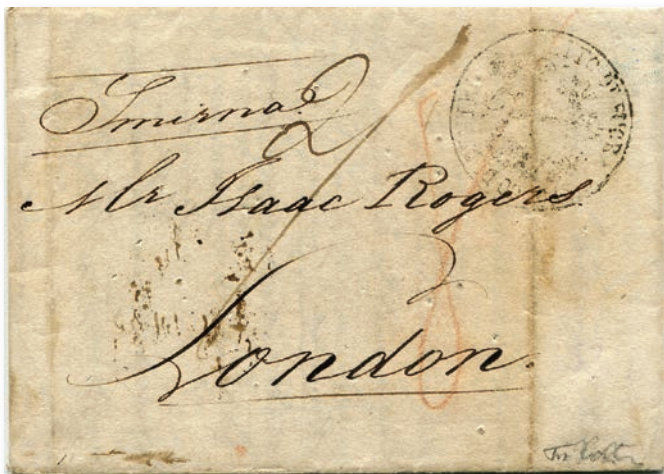 Smirna
2
Mr Isaac Rogers
London.